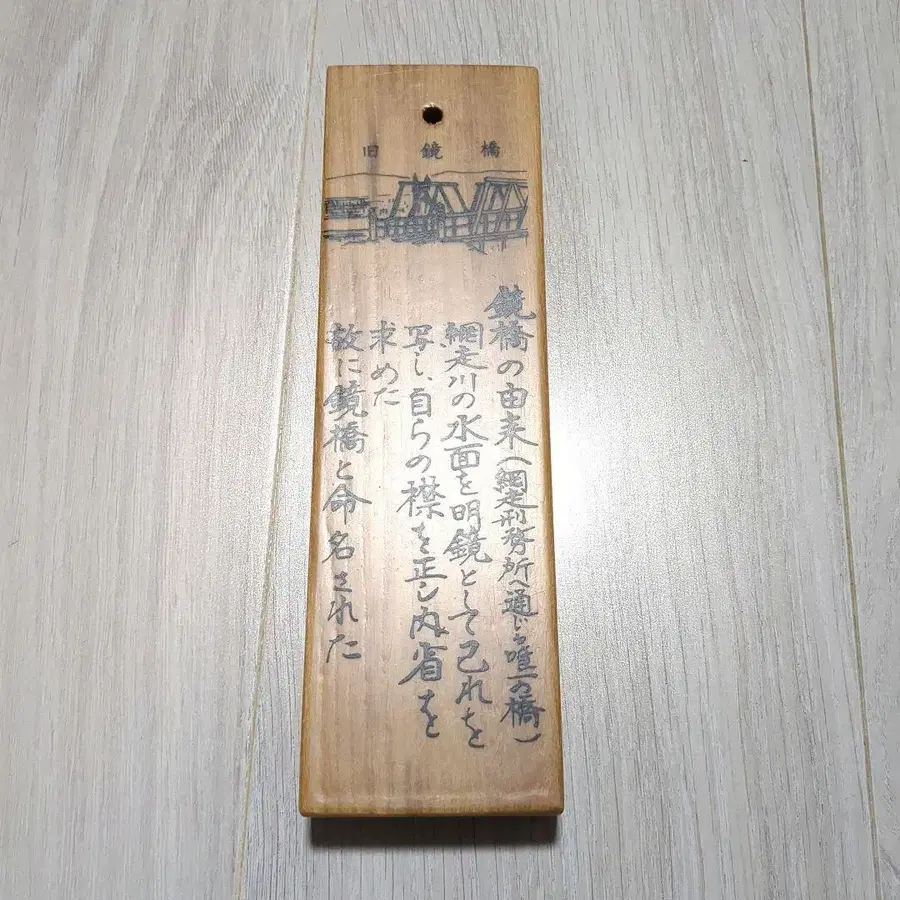 旧鏡橋
鏡橋の由来(網走刑務所へ通じる唯一の橋)
網走川の水面を明鏡として己れを
写し、自らの襟を正し内省を
求めた
故に鏡橋と命名された